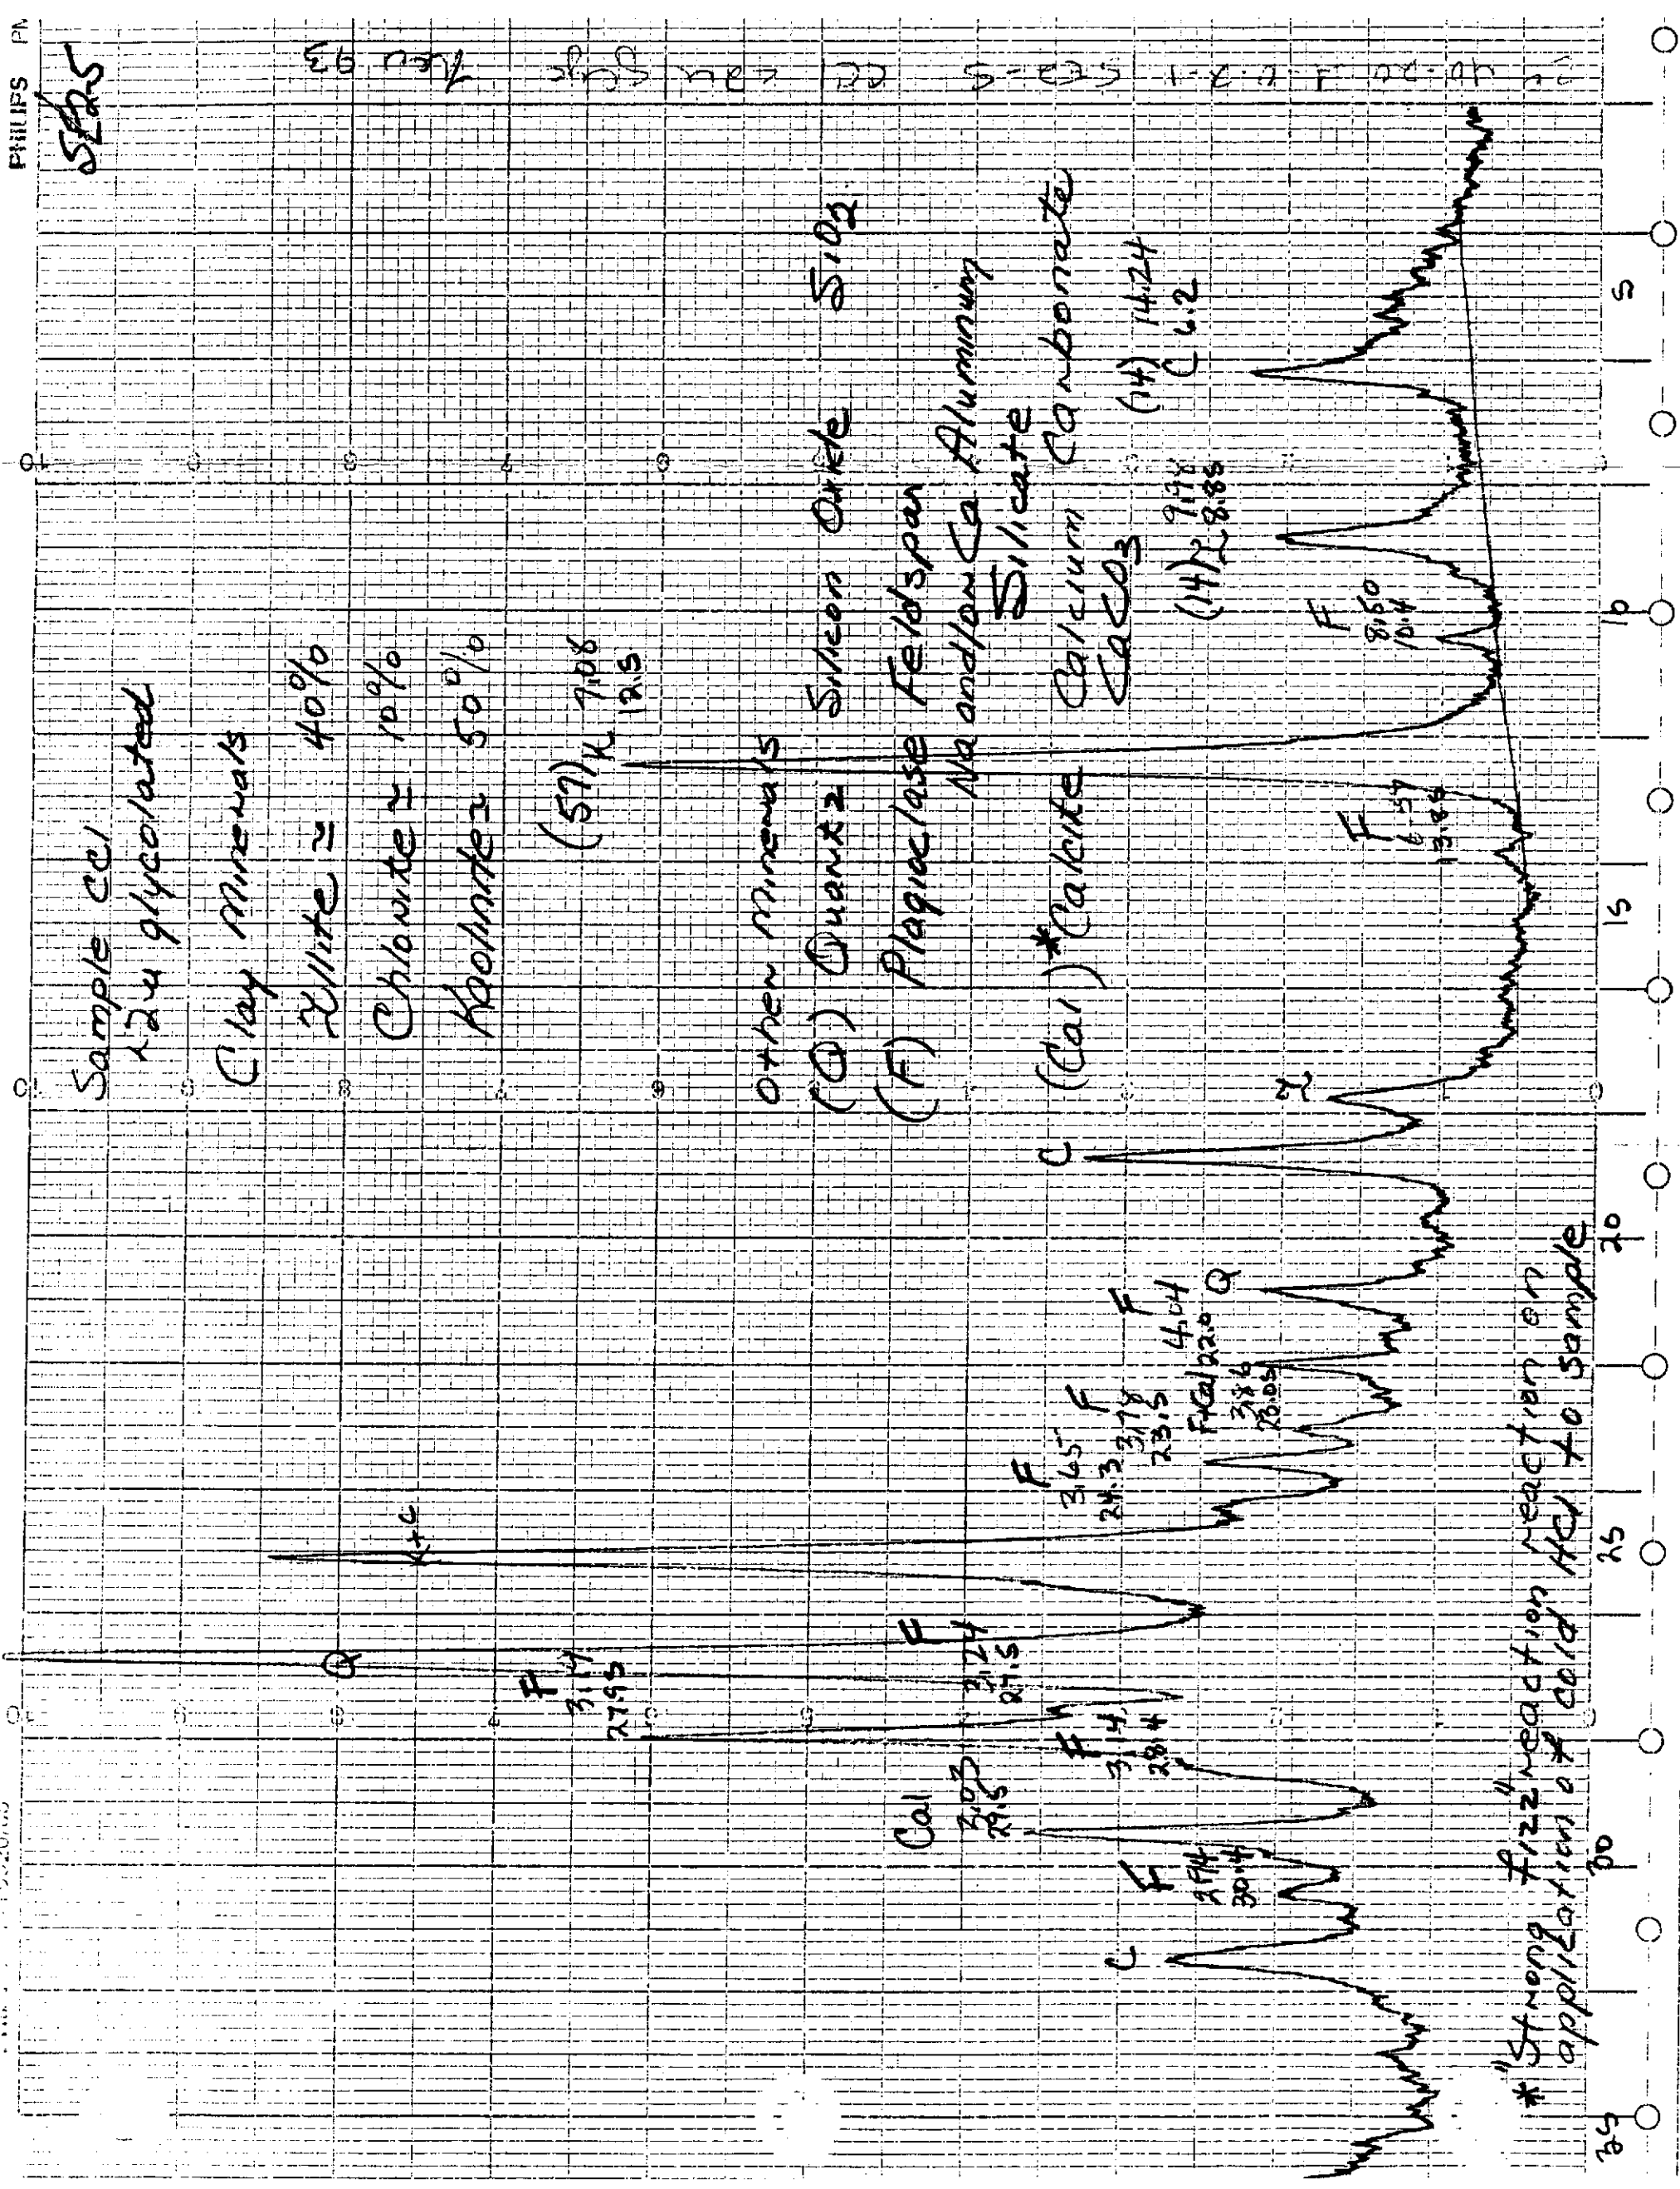 PHILIPS PM
SER-5
Sample CC1
<2u glycolated
Clay Minerals
Illite ≈ 40%
Chlorite ≈ 10%
Kaolinite ≈ 50%
(57) K 7.08
12.5
Other Minerals
(Q) Quartz Silicon Oxide SiO2
(F) Plagioclase Feldspar
Na and/or Ca Aluminum
Silicate
(Cal)* Calcite Calcium Carbonate
CaCO3
(14) 14.24
C 6.2
(14) I 9.98
8.85
F
8.50
10.4
F
6.37
13.85
I
C
Q
F
4.04
22.0
F+Cal
3.86
23.05
F
3.78
23.5
F
3.65
24.3
K+C
Q
F
3.24
27.5
F
3.19
27.95
F
3.14
28.4
Cal
3.03
29.5
F
2.94
30.4
C
35 30 25 20 15 10 5
*"Strong fizz" reaction reaction on
application of cold HCl to sample